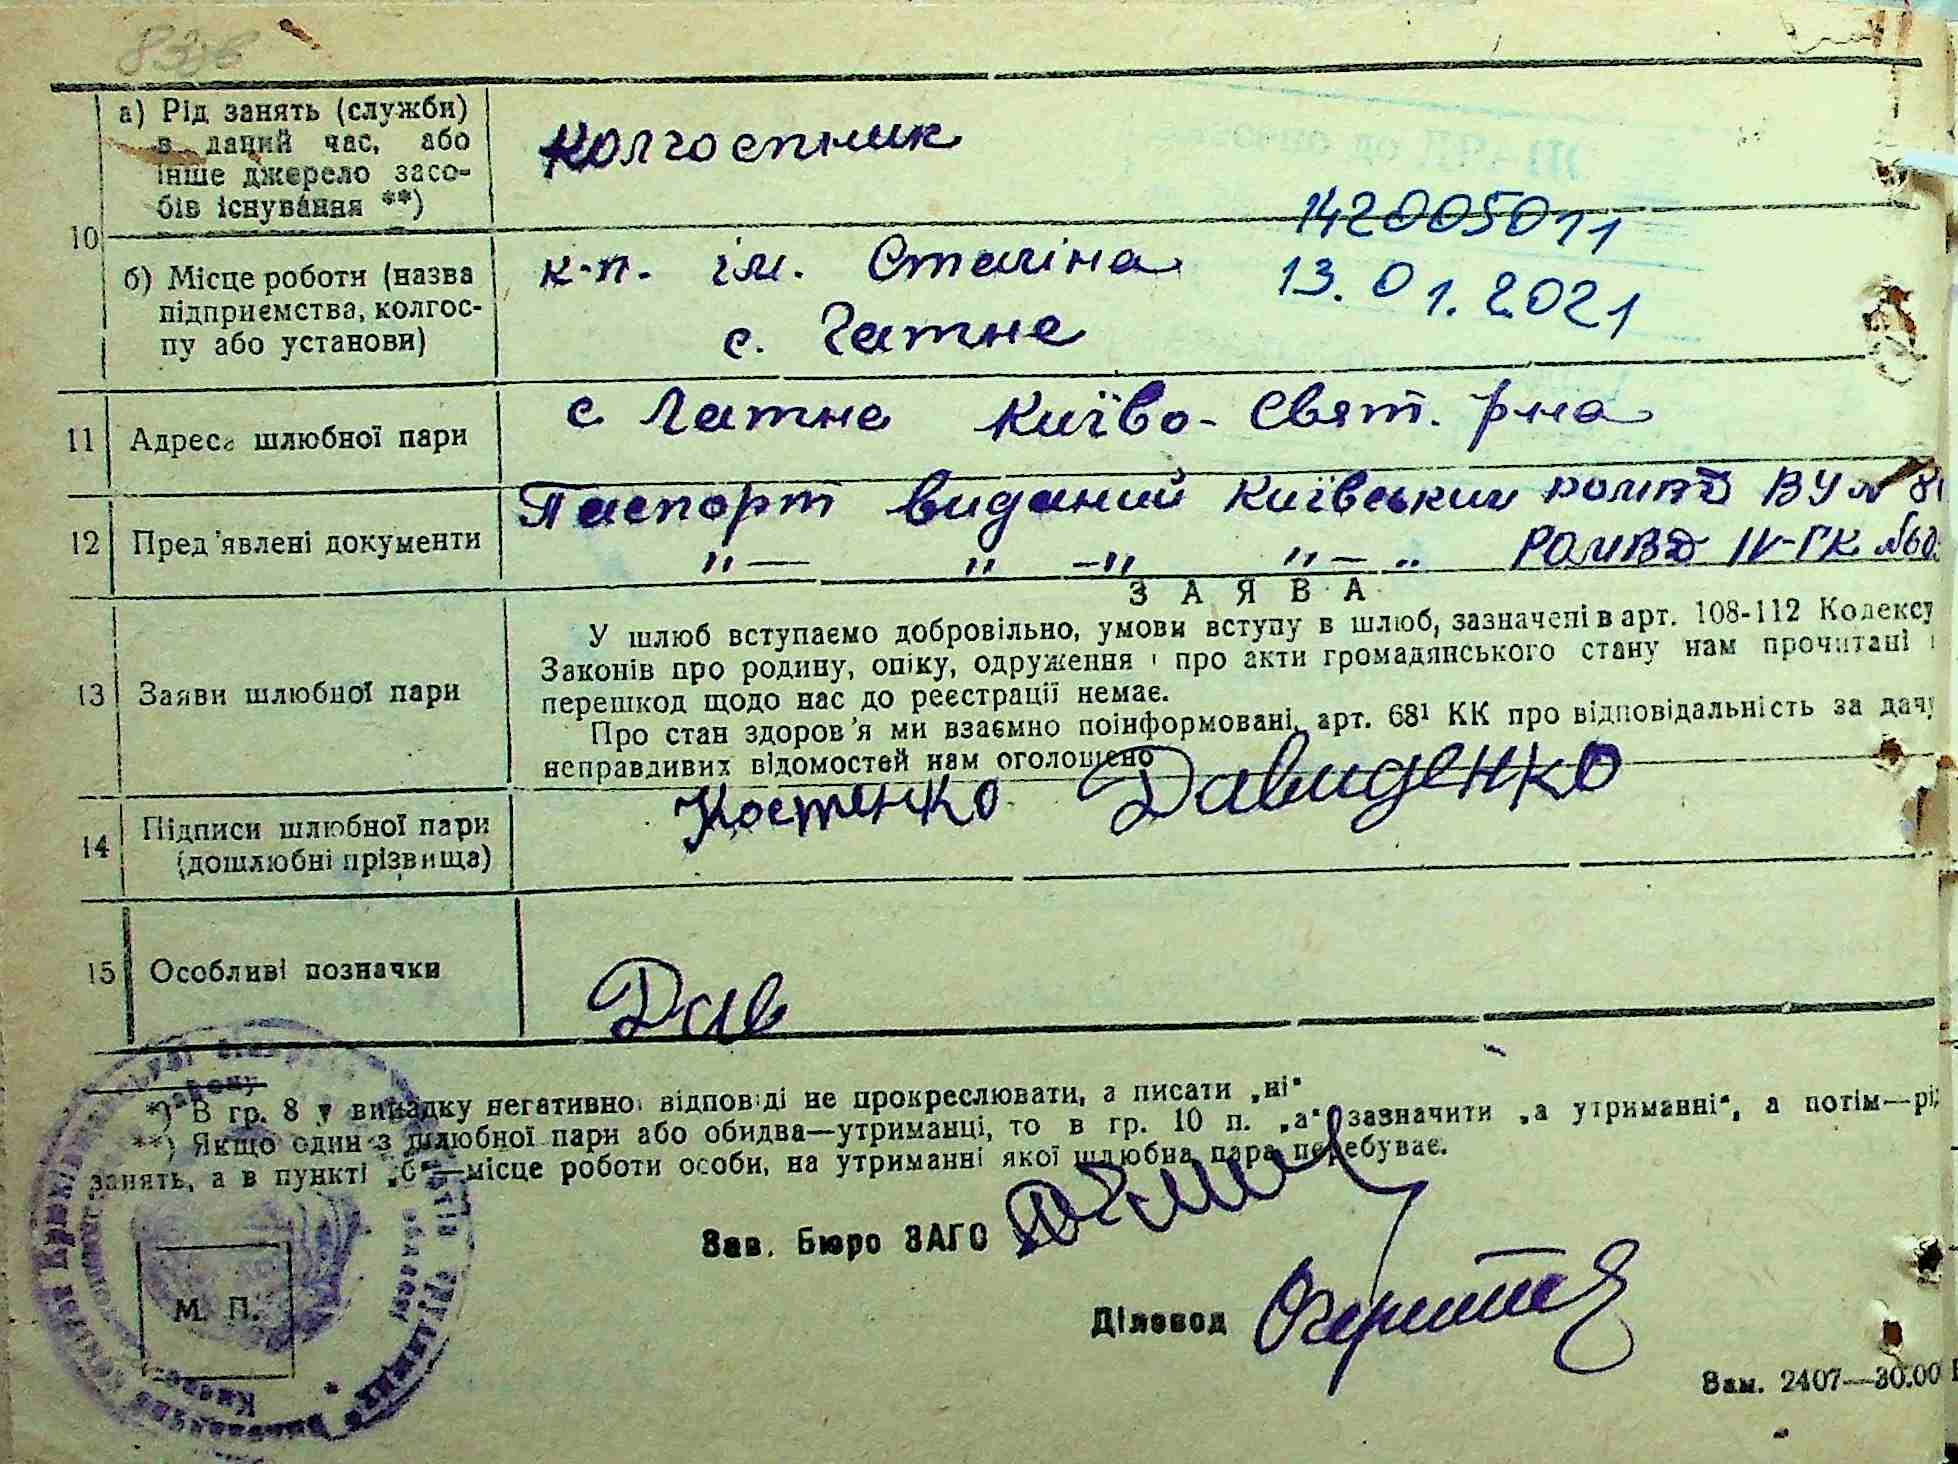 10
а) Рід занять (служби)
в даний час, або
інше джерело засо-
бів існування **)
Колгоспник
142005011
13.01.2021
б) Місце роботи (назва
підприємства, колгос-
пу або установи)
к-п. ім. Сталіна
с. Гатне
11 Адреса шлюбної пари
с Гатне Києво-Свят. рна
12 Пред'явлені документи
Паспорт виданий Київським ВУ №
„— „ —„ „— „ РОМВД IV-ГК №60
ЗАЯВА
13 Заяви шлюбної пари
У шлюб вступаємо добровільно, умови вступу в шлюб, зазначені в арт. 108-112 Кодексу
Законів про родину, опіку, одруження і про акти громадянського стану нам прочитані і
перешкод щодо нас до реєстрації немає.
Про стан здоров'я ми взаємно поінформовані, арт. 68¹ КК про відповідальність за дачу
неправдивих відомостей нам оголошено
14 Підписи шлюбної пари
(дошлюбні прізвища)
Костенко Давиденко
15 Особливі позначки
Дав
*) В гр. 8 у випадку негативної відповіді не прокреслювати, а писати „ні“
**) Якщо один з шлюбної пари або обидва—утриманці, то в гр. 10 п. „а“ зазначити „а утриманні“, а потім—рід
занять, а в пункті „б“—місце роботи особи, на утриманні якої шлюбна пара перебуває.
Зав. Бюро ЗАГС
М. П.
Діловод
Зам. 2407—30.00